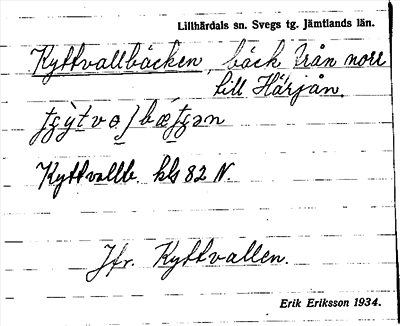 Lillhärdals sn. Svegs tg. Jämtlands län.
Kyttvallbäcken, bäck från norr
till Härjån.
Kyttvallb. kls 82 N.
Jfr. Kyttvallen.
Erik Eriksson 1934.